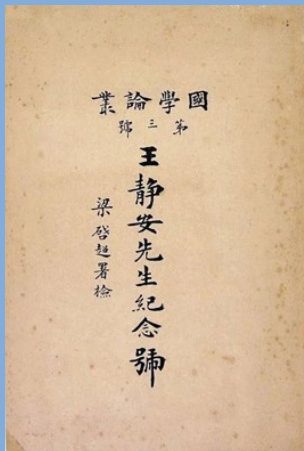 國學論叢
第三號
王靜安先生紀念號
梁啓超署檢